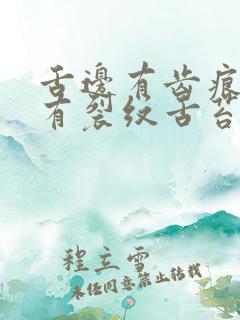 舌邊有齿痕
有裂纹舌苔
程立雪
未经同意禁止转载